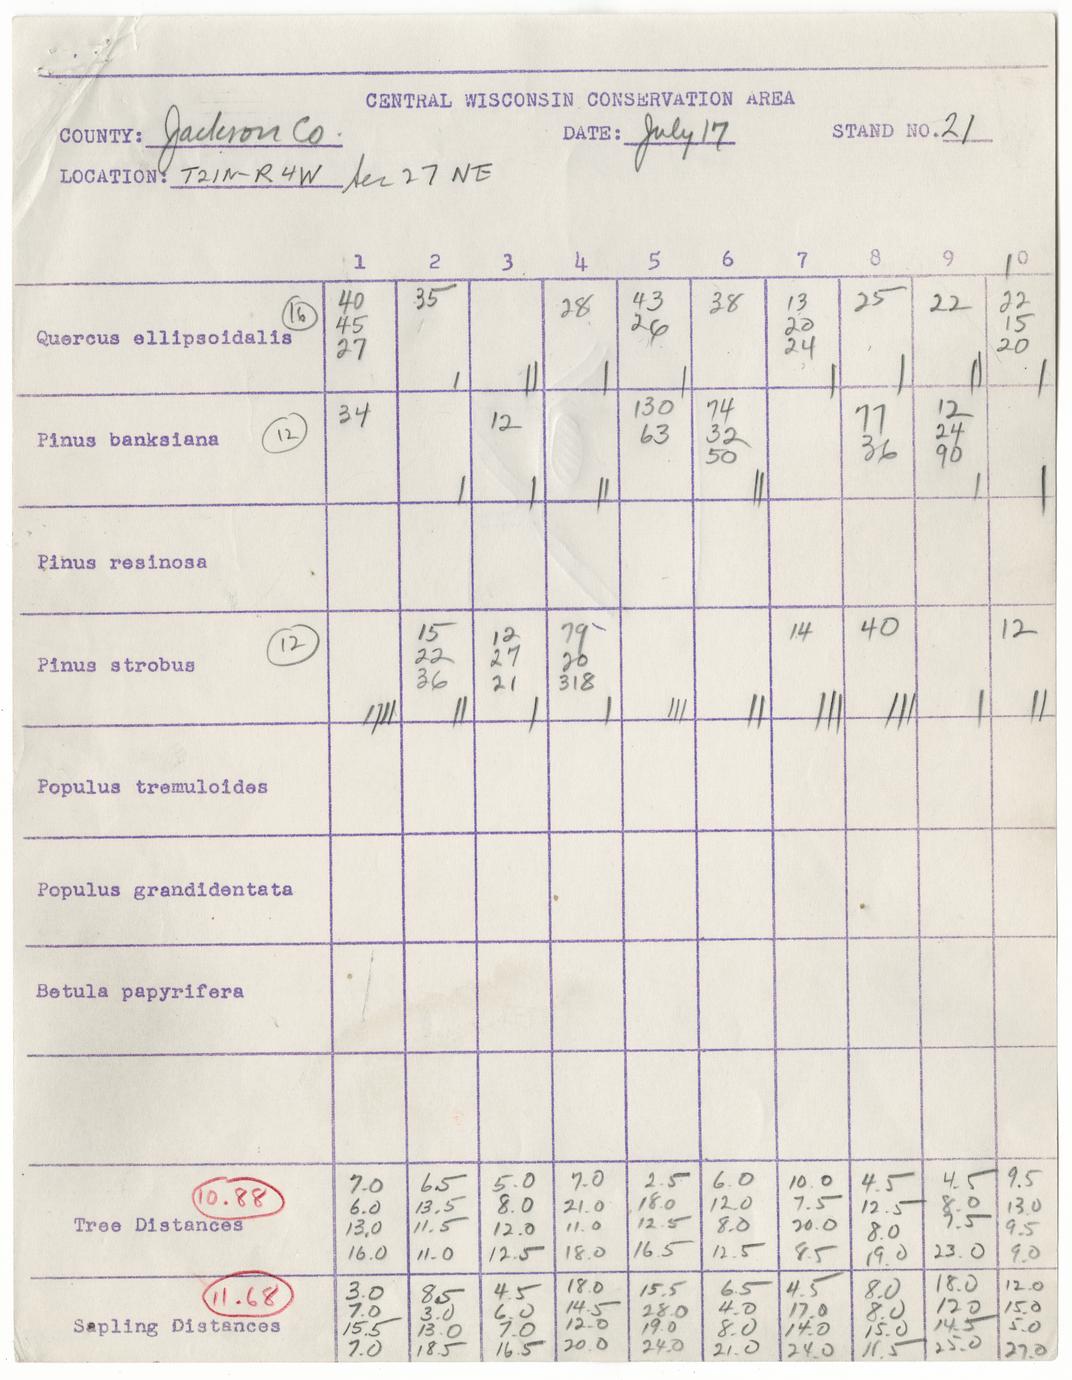 CENTRAL WISCONSIN CONSERVATION AREA
COUNTY: Jackson Co. DATE: July 17 STAND NO. 21
LOCATION: T21N-R4W Sec 27 NE
1 2 3 4 5 6 7 8 9 10
40 35 28 43 38 13 25 22 22
16 45 26 20 15
Quercus ellipsoidalis 27 24 20
| || | | | | || |
34 12 130 74 77 12
Pinus banksiana 12 63 32 36 24
50 90
| | || || | |
Pinus resinosa
15 12 79 14 40 12
Pinus strobus 12 22 27 20
36 21 318
|||| || | | ||| || ||| ||| | ||
Populus tremuloides
Populus grandidentata
Betula papyrifera
7.0 6.5 5.0 7.0 2.5 6.0 10.0 4.5 4.5 9.5
10.88 6.0 13.5 8.0 21.0 18.0 12.0 7.5 12.5 8.0 13.0
Tree Distances 13.0 11.5 12.0 11.0 12.5 8.0 20.0 8.0 7.5 9.5
16.0 11.0 12.5 18.0 16.5 12.5 8.5 19.0 23.0 9.0
11.68 3.0 8.5 4.5 18.0 15.5 6.5 4.5 8.0 18.0 12.0
7.0 3.0 6.0 14.5 28.0 4.0 17.0 8.0 12.0 15.0
Sapling Distances 15.5 13.0 7.0 12.0 19.0 8.0 14.0 15.0 14.5 5.0
7.0 18.5 16.5 20.0 24.0 21.0 24.0 11.5 25.0 27.0